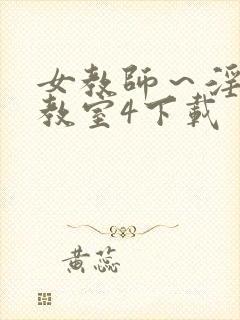 女教師～淫
教室4下載
黄蕊